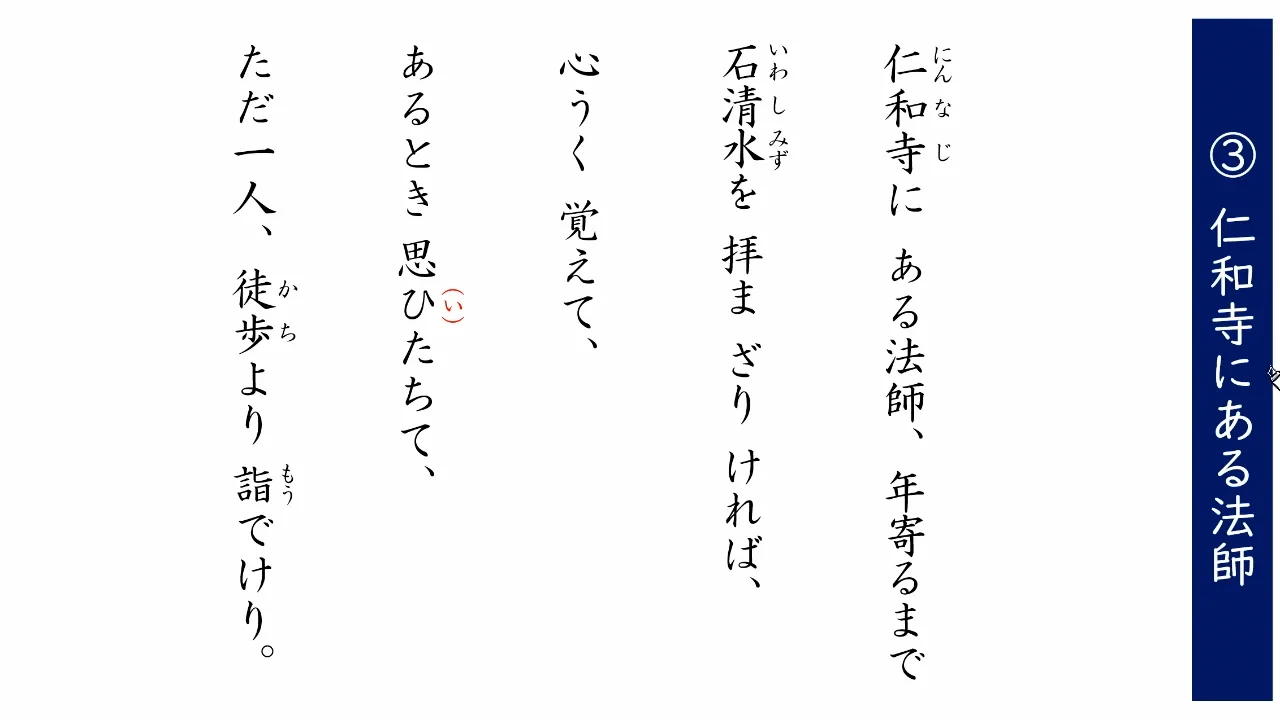 ③ 仁和寺にある法師
仁和寺に ある法師、 年寄るまで
にん な じ
石清水を 拝ま ざり ければ、
いわ し みず
心うく 覚えて、
あるとき 思ひたちて、
(い)
ただ一人、 徒歩より 詣でけり。
か ち もう